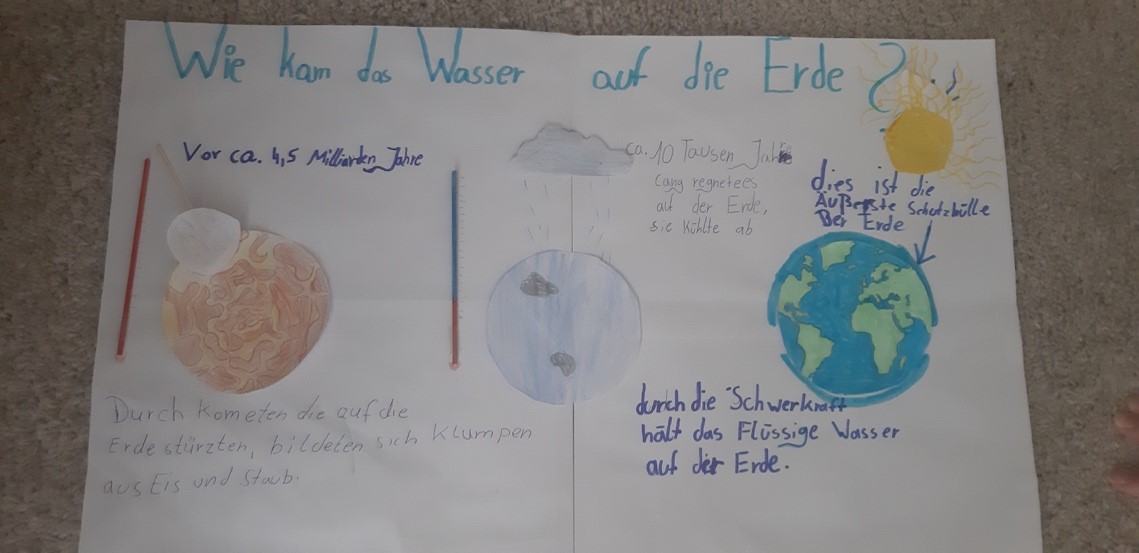 Wie kam das Wasser auf die Erde?
Vor ca. 4,5 Milliarden Jahre
ca. 10 Tausen Jahre
lang regnete es
auf der Erde,
sie kühlte ab
dies ist die
Äußerste Schutzhülle
Der Erde
Durch Kometen die auf die
Erde stürzten, bildeten sich Klumpen
aus Eis und Staub.
durch die Schwerkraft
hält das Flüssige Wasser
auf der Erde.